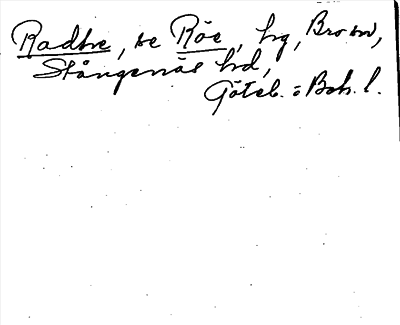 Radbre, se Röe, hg, Bro sn,
Stångenäs hd,
Göteb. o Boh. l.